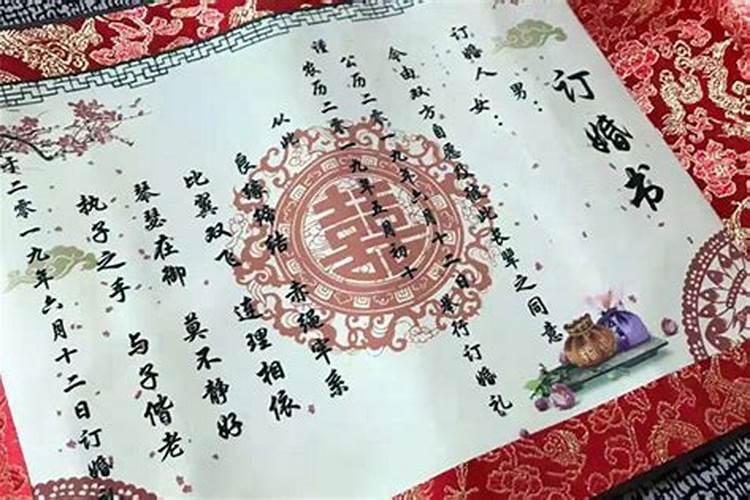 订婚书
男：
订婚人女：
今由双方自愿及彼此长辈之同意
谨 公历二零一九年六月十二日举行订婚礼
农历二零一九年五月初十
从此 赤绳牢系
良缘缔结 连理相依
比翼双飞 莫不静好
琴瑟在御 与子偕老
执子之手
于二零一九年六月十二日订婚